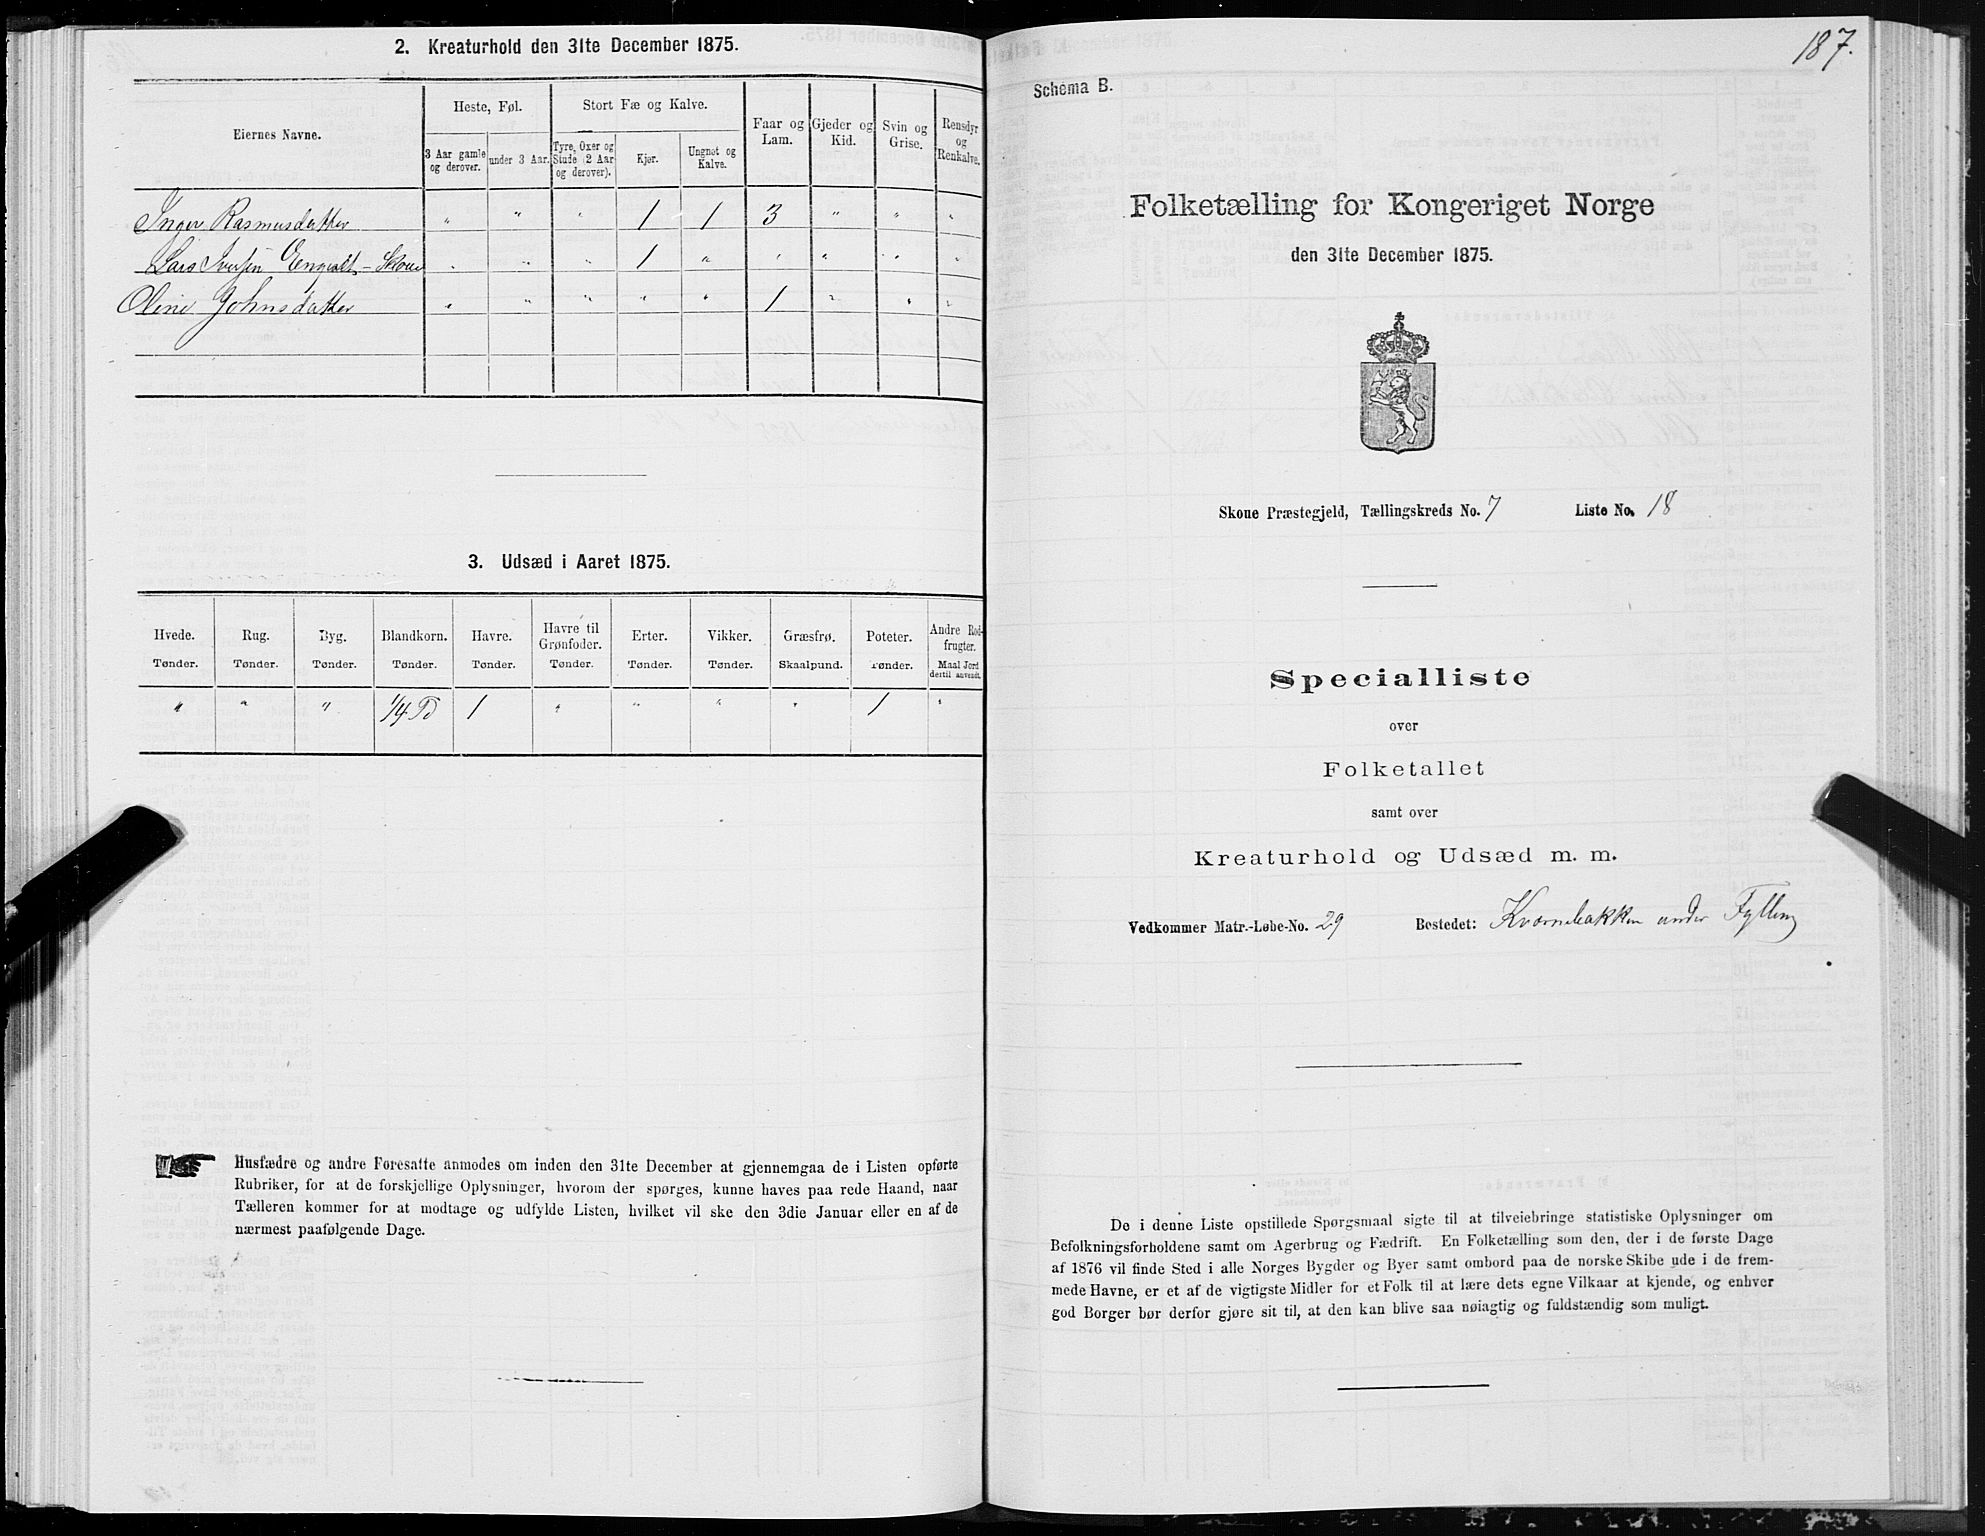 2. Kreaturhold den 31te December 1875.
Eiernes Navne.
Heste, Føl.
Stort Fæ og Kalve.
Faar og Lam.
Gjeder og Kid.
Svin og Grise.
Rensdyr og Renkalve.
3 Aar gamle og derover.
under 3 Aar.
Tyre, Oxer og Stude (2 Aar og derover).
Kjør.
Ungnøt og Kalve.
Inger Rasmusdatter " " " 1 1 3 " " "
Lars Iversen - Skoue " " " 1 " " " " "
Oline Johnsdatter " " " " " 1 " " "
3. Udsæd i Aaret 1875.
Hvede. Rug. Byg. Blandkorn. Havre. Havre til Grønfoder. Erter. Vikker. Græsfrø. Poteter. Andre Rodfrugter.
Tønder. Tønder. Tønder. Tønder. Tønder. Tønder. Tønder. Tønder. Skaalpund. Tønder. Maal Jord dertil anvendt.
" " " 1/4 Td 1 " " " " 1 "
Husfædre og andre Foresatte anmodes om inden den 31te December at gjennemgaa de i Listen opførte
Rubriker, for at de forskjellige Oplysninger, hvorom der spørges, kunne haves paa rede Haand, naar
Tælleren kommer for at modtage og udfylde Listen, hvilket vil ske den 3die Januar eller en af de
nærmest paafølgende Dage.
187.
Schema B.
Folketælling for Kongeriget Norge
den 31te December 1875.
Skoue Præstegjeld, Tællingskreds No. 7 Liste No. 18
Specialliste
over
Folketallet
samt over
Kreaturhold og Udsæd m. m.
Vedkommer Matr.-Løbe-No. 29 Bostedet: Kværnebakken under Fylling
De i denne Liste opstillede Spørgsmaal sigte til at tilveiebringe statistiske Oplysninger om
Befolkningsforholdene samt om Agerbrug og Fædrift. En Folketælling som den, der i de første Dage
af 1876 vil finde Sted i alle Norges Bygder og Byer samt ombord paa de norske Skibe ude i de frem-
mede Havne, er et af de vigtigste Midler for et Folk til at lære dets egne Vilkaar at kjende, og enhver
god Borger bør derfor gjøre sit til, at den kan blive saa nøiagtig og fuldstændig som muligt.